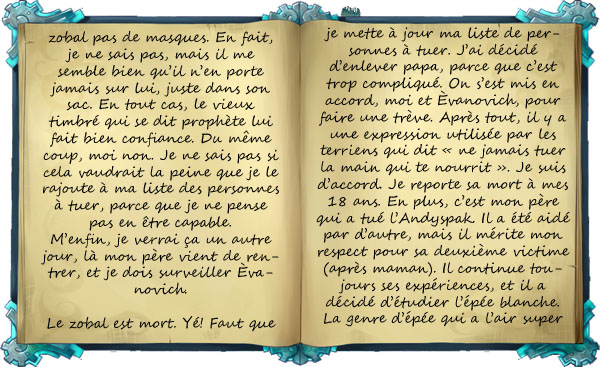 zobal pas de masques. En fait,
je ne sais pas, mais il me
semble bien qu'il n'en porte
jamais sur lui, juste dans son
sac. En tout cas, le vieux
timbré qui se dit prophète lui
fait bien confiance. Du même
coup, moi non. Je ne sais pas si
cela vaudrait la peine que je le
rajoute à ma liste des personnes
à tuer, parce que je ne pense
pas en être capable.
M'enfin, je verrai ça un autre
jour, là mon père vient de ren-
trer, et je dois surveiller Èva-
novich.
Le zobal est mort. Yé! Faut que
je mette à jour ma liste de per-
sonnes à tuer. J'ai décidé
d'enlever papa, parce que c'est
trop compliqué. On s'est mis en
accord, moi et Èvanovich, pour
faire une trève. Après tout, il y a
une expression utilisée par les
terriens qui dit « ne jamais tuer
la main qui te nourrit ». Je suis
d'accord. Je reporte sa mort à mes
18 ans. En plus, c'est mon père
qui a tué l'Andyspak. Il a été aidé
par d'autre, mais il mérite mon
respect pour sa deuxième victime
(après maman). Il continue tou-
jours ses expériences, et il a
décidé d'étudier l'épée blanche.
La genre d'épée qui a l'air super